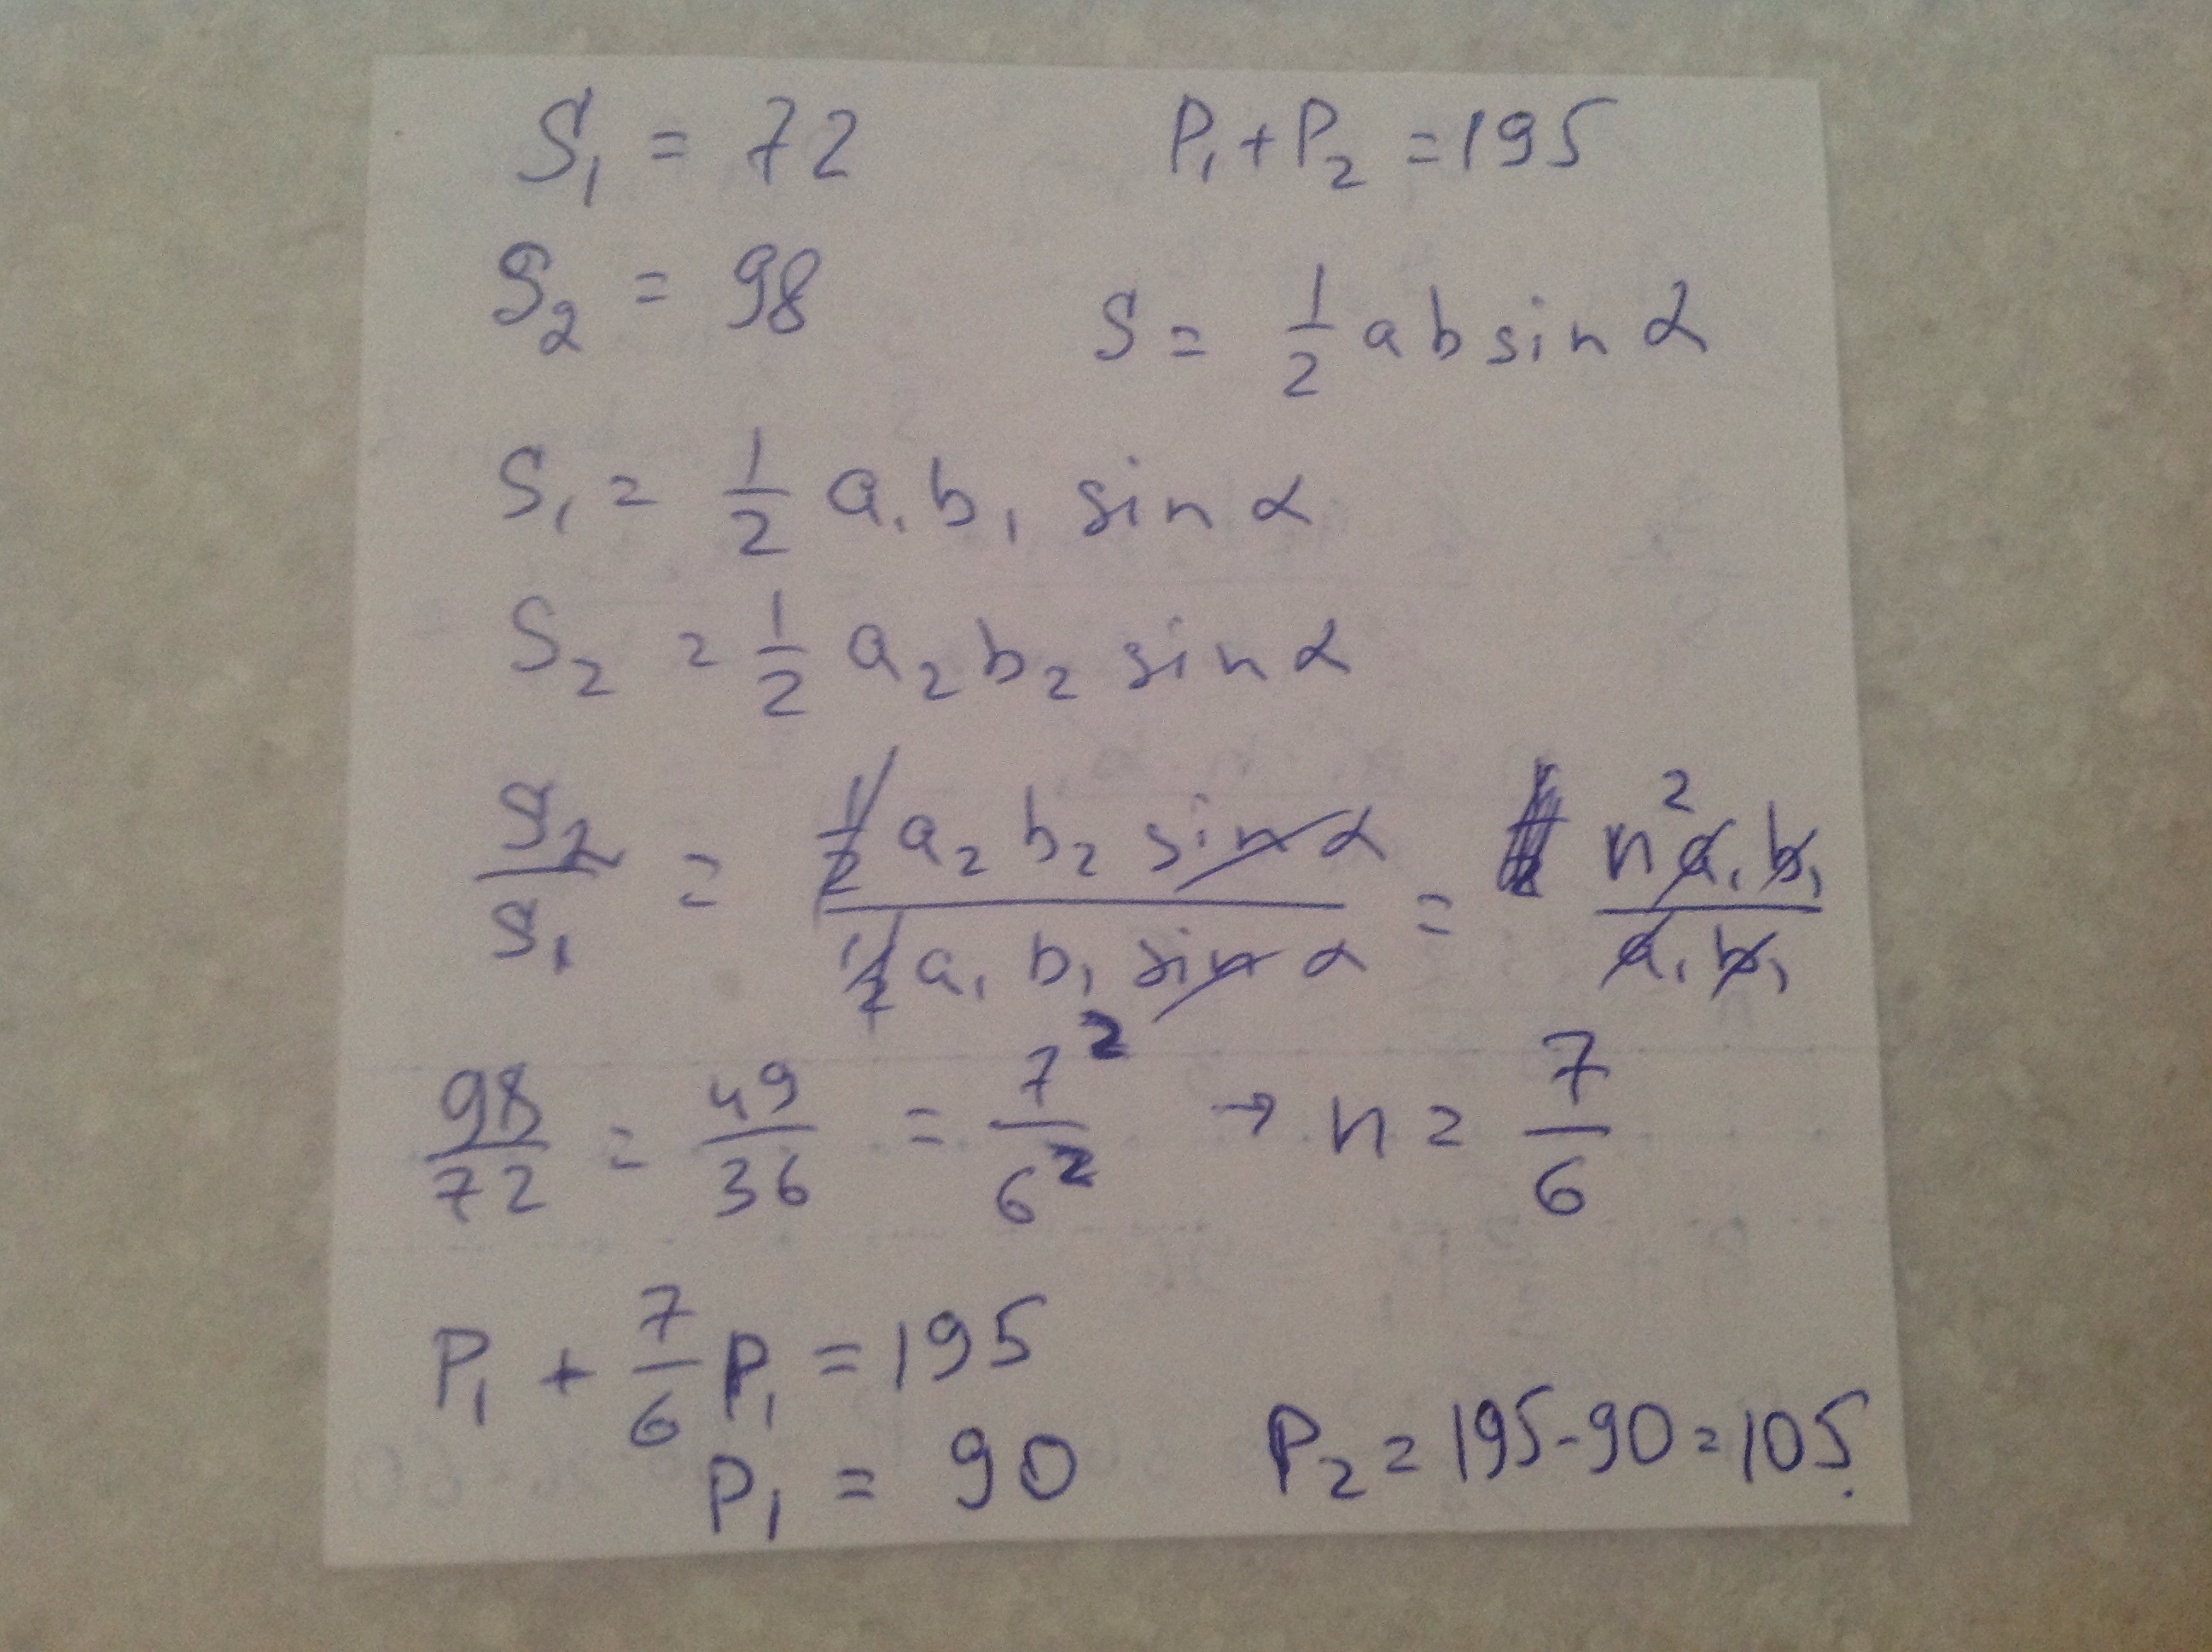 S₁ = 72 P₁ + P₂ = 195
S₂ = 98 S = 1/2 a b sin α
S₁ = 1/2 a₁ b₁ sin α
S₂ = 1/2 a₂ b₂ sin α
S₂/S₁ = (1/2 a₂ b₂ sin α)/(1/2 a₁ b₁ sin α) = (n² a₁ b₁)/(a₁ b₁)
98/72 = 49/36 = 7²/6² → n = 7/6
P₁ + 7/6 P₁ = 195
P₁ = 90 P₂ = 195 - 90 = 105.